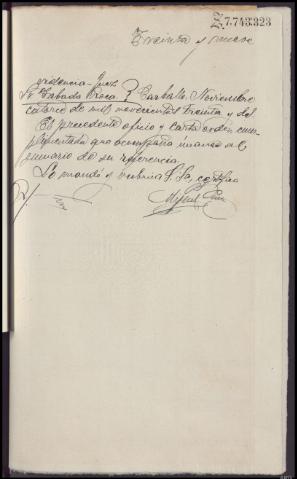 7.743323
Treinta y nueve
Providencia - Juez
Sr Taboada Roca. Carballo Noviembre
catorce de mil novecientos treinta y dos
El precedente oficio y carta orden cum-
plimentada que acompaña únanse al
sumario de su referencia.
Lo mandó y rubrica S. Sa, certifico
Miguel